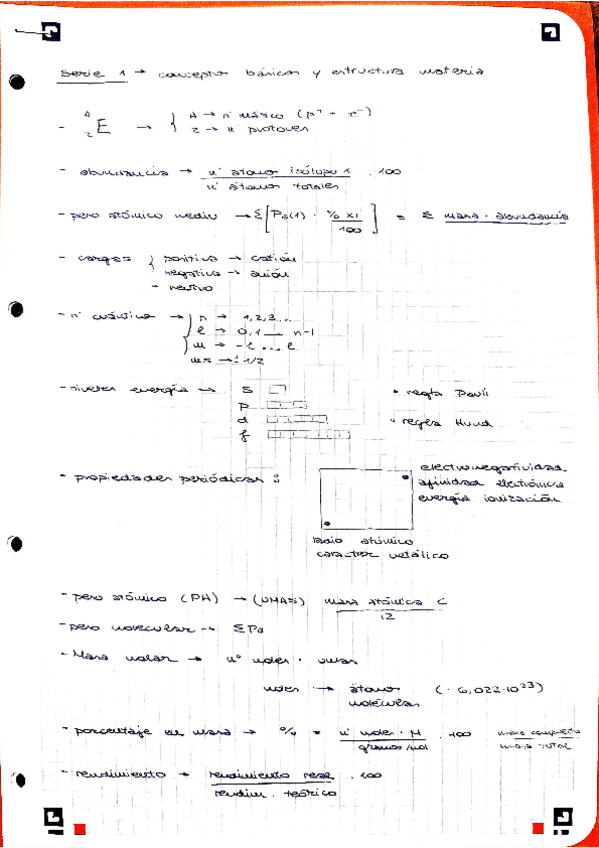 Serie 1 → conceptos básicos y estructura materia
- A Z E → { A → nº másico (p⁺ + e⁻)
Z → nº protones
- abundancia → nº átomos isótopo x / nº átomos totales · 100
- peso atómico medio → Σ[Pa(1) · % x1 / 100] = Σ masa · abundancia
- cargas { positiva → catión
negativa → anión
- neutro
- nº cuántico → { n → 1,2,3...
l → 0,1 __ n-1
m → -l ... l
ms → ± 1/2
- niveles energía → s
• regla Pauli
p
d
• regla Hund
f
- propiedades periódicas :
electronegatividad
afinidad electrónica
energía ionización
radio atómico
caracter metálico
- peso atómico (PA) → (UMAS) masa atómica C / 12
- peso molecular → ΣPa
- Masa molar → nº moles · umas
moles → átomos (· 6,022·10²³)
moléculas
- porcentaje en masa → % = nº moles · M / gramos/mol · 100 masa compuesto / masa total
- rendimiento → rendimiento real / rendim. teórico · 100